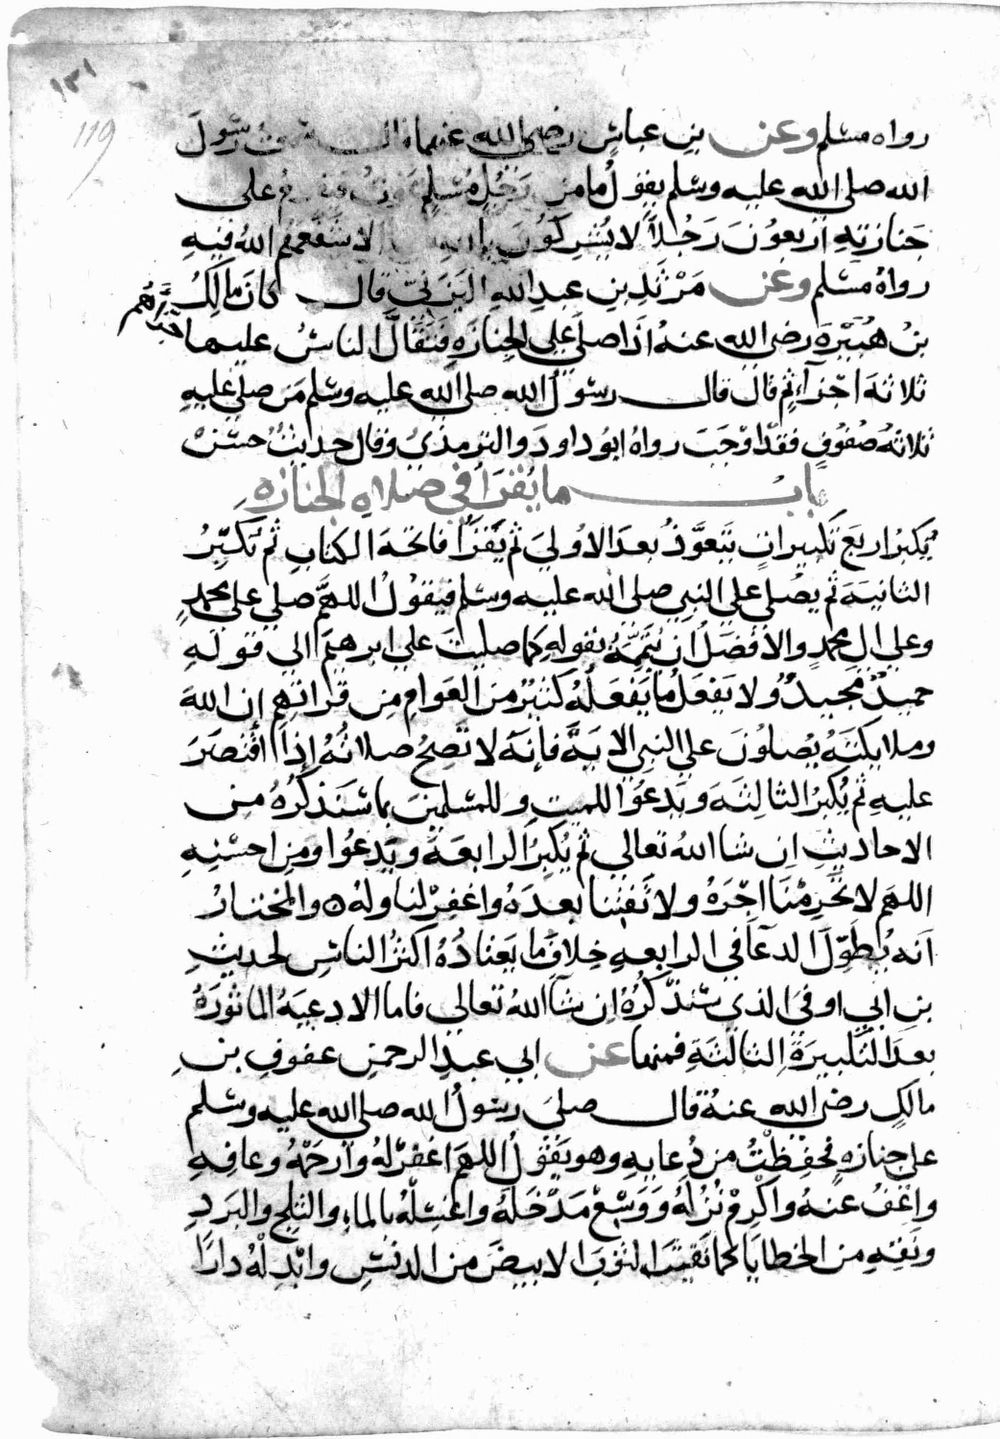 ١٣١
119
رواه مسلم وعن بن عباس رضي الله عنهما قال سمعت رسول
الله صلى الله عليه وسلم يقول ما من رجل مسلم يموت فيقوم على
جنازته اربعون رجلا لا يشركون بالله الا شفعهم الله فيه
رواه مسلم وعن مرثد بن عبد الله اليزني قال كان مالك
بن هبيرة رضي الله عنه اذا صلى على الجنازه فتقال الناس عليها جزءهم
ثلاثة اجزاء ثم قال قال رسول الله صلى الله عليه وسلم من صلى عليه
ثلاثة صفوف فقد اوجب رواه ابو داود والترمذي وقال حديث حسن
باب ما يقرا في صلاه الجنازه
يكبر اربع تكبيرات يتعوذ بعد الاولى ثم يقرا فاتحة الكتاب ثم يكبر
الثانية ثم يصلي على النبي صلى الله عليه وسلم فيقول اللهم صلي على محمد
وعلى ال محمد والافضل ان يتمه بقوله كما صليت على ابرهيم الى قوله
حميد مجيد ولا يفعل ما يفعله كثير من العوام من قراتهم ان الله
وملايكته يصلون على النبي الاية فانه لا تصح صلاته اذا اقتصر
عليه ثم يكبر الثالثة ويدعوا للميت وللمسلمين بما سنذكره من
الاحاديث ان شا الله تعالى ثم يكبر الرابعة ويدعوا ومن احسنه
اللهم لا تحرمنا اجره ولا تفتنا بعده واغفر لنا وله ه والمختار
انه يطول الدعا في الرابعه خلاف ما يعتاده اكثر الناس لحديث
بن ابي اوفى الذي سنذكره ان شآ الله تعالى فاما الادعية الماثورة
بعد التكبيرة الثالثة فمنها عن ابي عبد الرحمن عوف بن
مالك رضي الله عنه قال صلى رسول الله صلى الله عليه وسلم
على جنازه فحفظت من دعايه وهو يقول اللهم اغفر له وارحمه وعافه
واعف عنه واكرم نزله ووسع مدخله واغسله بالماء والثلج والبرد
ونقه من الخطايا كما نقيت الثوب الابيض من الدنس وابدله دارا